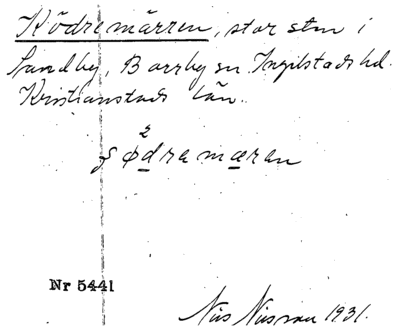 Ködremärren, stor sten i
Sandby, Borrby sn Ingelstads hd.
Kristianstads län.
2
ʃødramæran
Nr 5441
Nils Nilsson 1931.